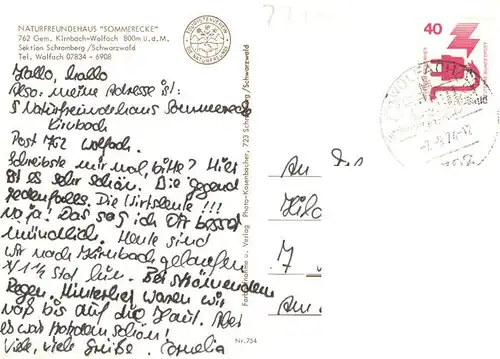 NATURFREUNDEHAUS "SOMMERECKE"
762 Gem. Kirnbach-Wolfach 800m ü.d.M.
Sektion Schramberg/Schwarzwald
Tel. Wolfach 07834 - 6908
Hallo, hallo
Also: meine Adresse ist:
Naturfreundehaus Sommerecke
Kirnbach
Post 762 Wolfach.
Schreibste mir mal, bitte? Hier
ist es sehr schön. Die Gegend
jedenfalls. Die Wirtsleute!!!
Na ja! Das sag ich Dir besser
mündlich. Heute sind
wir nach gelaufen
1 1/4 Std hin. Bei strömendem
Regen. Hinterher waren wir
naß bis auf die Haut. Aber
es war trotzdem schön!
Viele, viele Grüße. Cornelia
TOURISTENVEREIN
DIE NATURFREUNDE
Farbaufnahme u. Verlag Photo-Kasenbacher, 723 Schramberg/Schwarzwald
Nr. 754
40
An
7